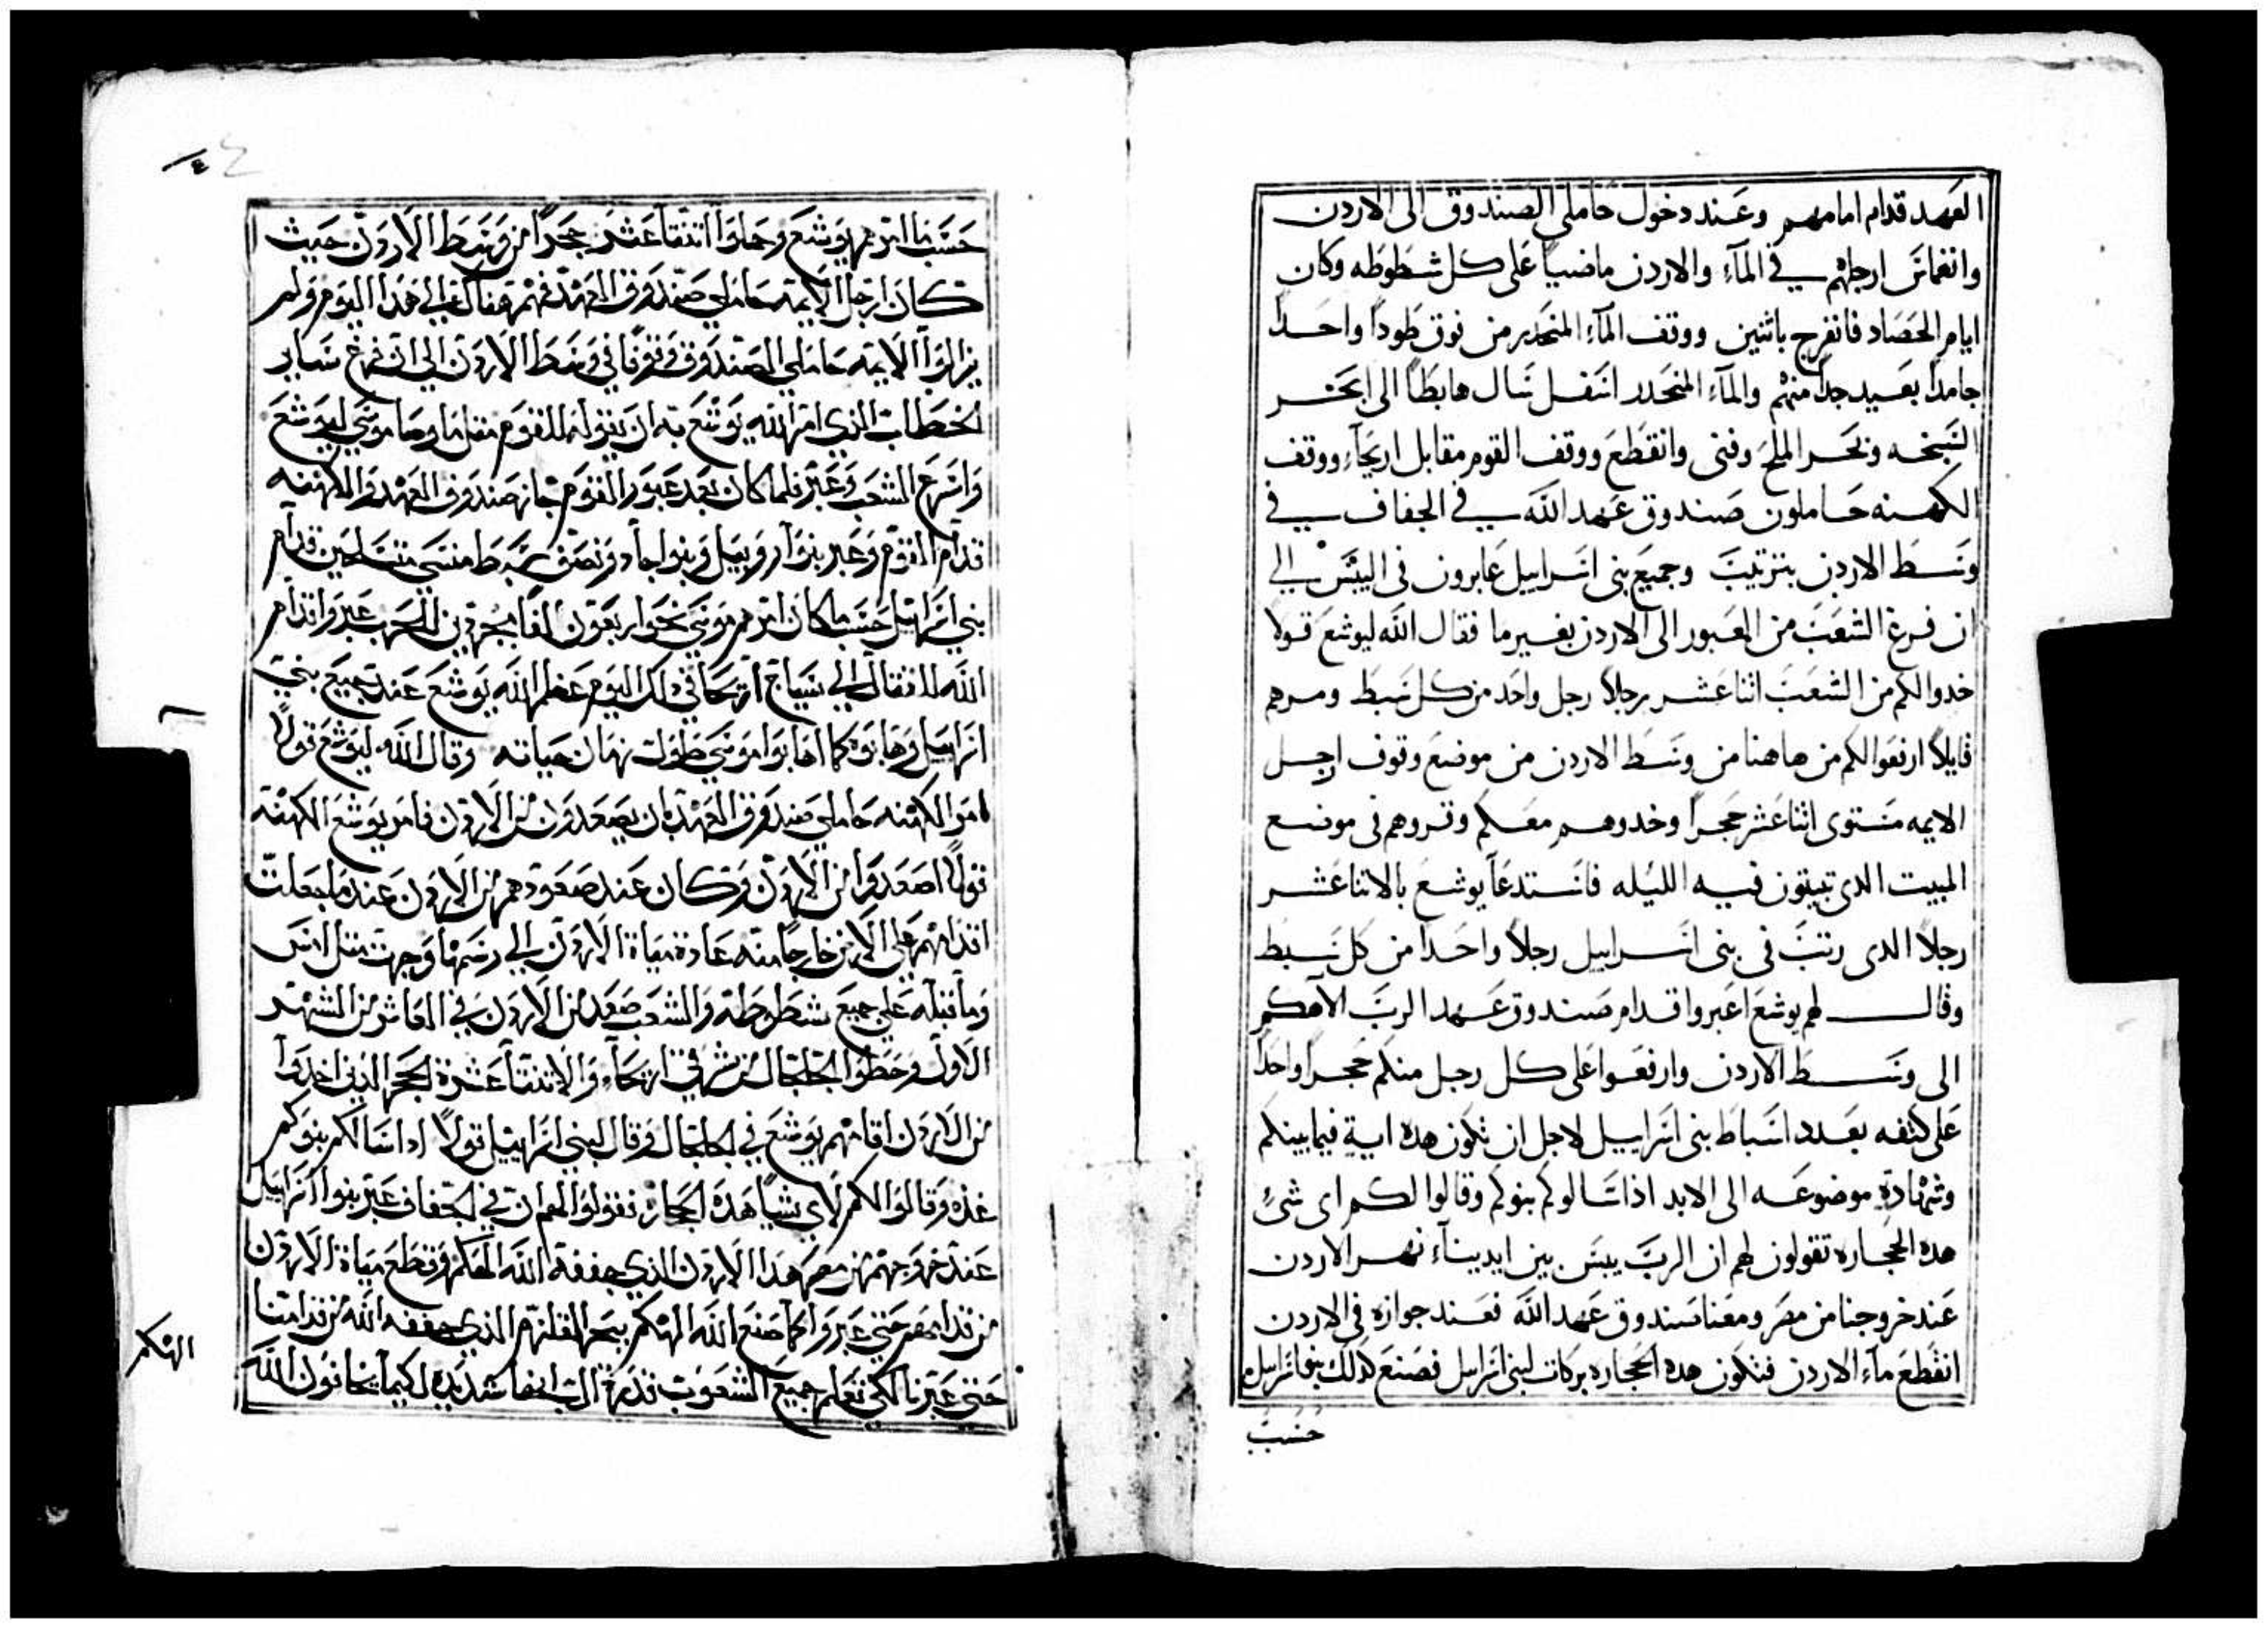 العهد قدام امامهم وعند دخول حاملي الصندوق الى الاردن
وانغماس ارجلهم في المآء والاردن ماضيا على كل شطوطه وكان
ايام الحصاد فانفرج باثنين ووقف المآء المنحدر من فوق طودا واحدا
جامدا بعيد جدا منهم والمآء المنحدر اسفل سال هابطا الى بحر
السبخه وبحر الملح وفنى وانقطع ووقف القوم مقابل اريحآء ووقف
الكهنه حاملون صندوق عهد الله في الجفاف في
وسط الاردن بترتيب وجميع بنى اسراييل عابرون فى اليبس الي
ان فرغ الشعب من العبور الى الاردن بغيرما فقال الله ليوشع قولا
خدوا لكم من الشعب اثنا عشر رجلا رجل واحد من كل سبط ومرهم
قايلا ارفعوا لكم من هاهنا من وسط الاردن من موضع وقوف ارجل
الايمه مستوى اثنا عشر حجرا وخدوهم معكم وتروهم فى موضع
المبيت الدى تبيتون فيه الليله فاستدعا يوشع بالاثنا عشر
رجلا الدى رتب فى بنى اسراييل رجلا واحدا من كل سبط
وقال لهم يوشع اعبروا قدام صندوق عهد الرب الاهكم
الى وسط الاردن وارفعوا على كل رجل منكم حجرا واحدا
على كتفه بعدد اسباط بنى اسراييل لاجل ان تكون هده اية فيما بينكم
وشهادة موضوعه الى الابد اذا سالوكم بنوكم وقالوا لكم اى شئ
هده الحجاره تقولون لهم ان الرب يبس بين ايديناء نهر الاردن
عند خروجنا من مصر ومعنا صندوق عهد الله فعند جوازه فى الاردن
انقطع مآء الاردن فتكون هده الحجاره بركات لبنى اسراييل فصنع كذلك بنو اسراييل
حسب
حسب ما امرهم يوشع وحملوا اثنتا عشر حجرا من وسط الاردن حيث
كان ارجل الايمه حاملي صندوق العهد فهم هناك الي هدا اليوم ولم
يزالوا الايمه حاملي الصندوق وقوفا في وسط الاردن الي ان فرغ ساير
الخطاب الذي امر الله يوشع به ان يقوله للقوم مثل ما وصا موسي ليوشع
واسرع الشعب وعبر فلما كان بعد عبور القوم جاز صندوق العهد والايمه
قدام القوم وعبر بنوا روبيل وبنوا جاد ونصف سبط منسي متسلحين قدام
بني اسراييل حسب ما كان امرهم موسي نحوا ربعون الفا مجردين للحرب عبروا قدام
الله للقتال الي سياج اريحا في دلك اليوم عظم الله يوشع عند جميع بني
اسراييل وهابوه كما هابوا موسي طول زمان حياته وقال الله ليوشع قولا
امر الكهنه حاملي صندوق العهد ان يصعدون من الاردن فامر يوشع الكهنة
قولا اصعدوا من الاردن وكان عند صعودهم من الاردن عند ما جعلت
اقدامهم علي الارض خارجا منه عادة مياة الاردن الي رسمها وجرت مثل امس
وما قبله علي جميع شطوطه والشعب صعد من الاردن في العاشر من الشهر
الاول وحطوا الجلجال من شرقي اريحآء والاثنتا عشرة الحجر الذين اخدوا
من الاردن اقامهم يوشع في الجلجال وقال لبني اسراييل قولا ادا سالكم بنوكم
غده وقالوا لكم لاي شيا هده الحجاره فقولوا لهم ان في الجفاف عبر بنوا اسراييل
عند خروجهم من مصر هدا الاردن الذي جففه الله الهكم وقطع مياة الاردن
من قدامهم حتي عبروا كما صنع الله الهكم ببحر القلزم الذي جففه الله من قدامنا
حتي عبرنا لكي تعلم جميع الشعوب قدرة الرب انها شديده لكيما يخافون الله
الهكم